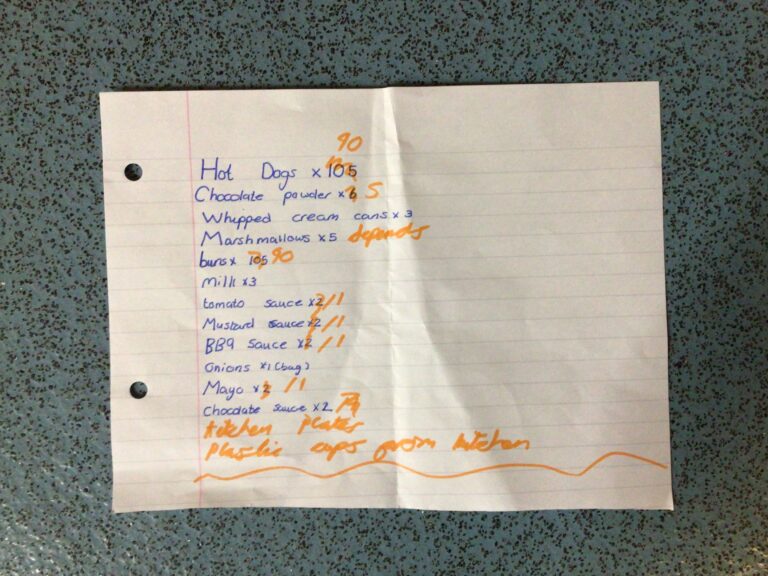 90
Hot Dogs x 105
Chocolate powder x 6 5
Whipped cream cans x 3
Marshmallows x 5 depends
buns x 105 90
Milk x 3
tomato sauce x 2 /1
Mustard sauce x 2 /1
BBQ sauce x 2 /1
Onions x 1 (bag)
Mayo x 2 /1
Chocolate sauce x 2
Kitchen Plates
Plastic cups from kitchen